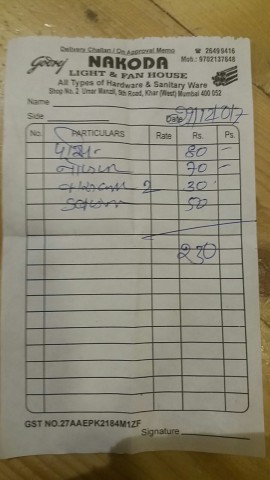 Delivery Challan / On Approval Memo
☎ 26499416
Godrej NAKODA Mob.: 9702137648
LIGHT & FAN HOUSE
All Types of Hardware & Sanitary Ware
Shop No. 2 Umar Manzil, 9th Road, Khar (West) Mumbai 400 052
Name
Side Date
No. PARTICULARS Rate Rs. Ps.
80 -
70 -
2 30
50
230
GST NO.27AAEPK2184M1ZF
Signature